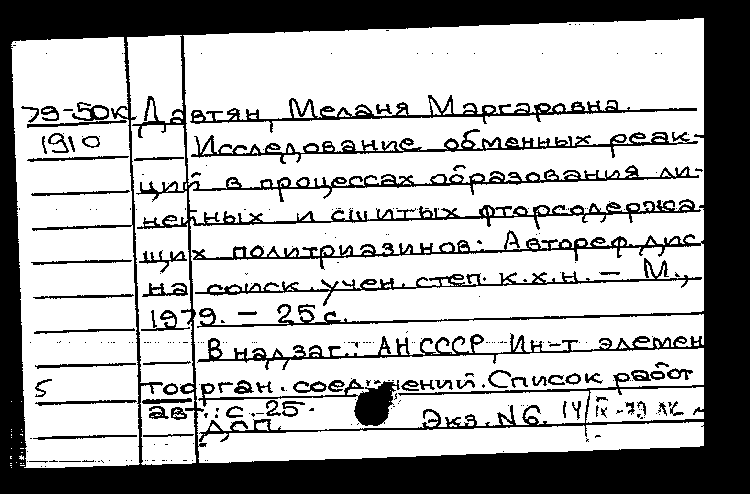 79-50к Давтян, Мелания Маргаровна.
1910 Исследование обменных реак-
ций в процессах образования ли-
нейных и сшитых фторсодержа-
щих политриазинов: Автореф. дис.
на соиск. учен. степ. к.х.н. — М.,
1979. — 25 с.
В надзаг.: АН СССР, Ин-т элемен
5 тоорган. соединений. Список работ
авт.: с. 25.
ДОП. Экз. N6. 14/IX-79